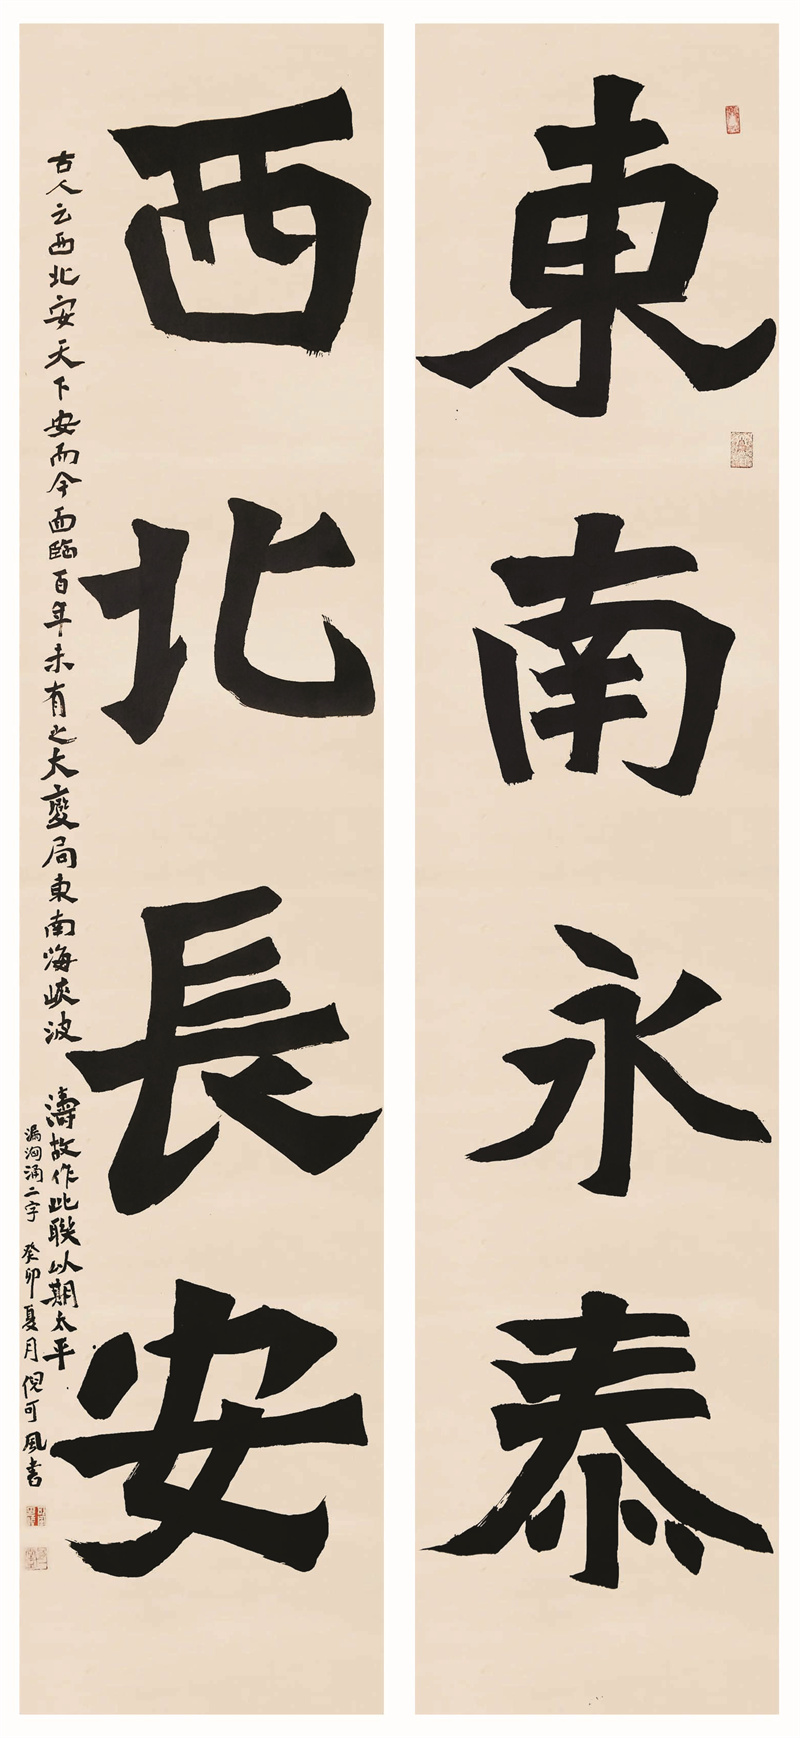 東南永泰
西北長安
古人云西北安天下安而今面臨百年未有之大變局東南海峽波
濤故作此聯以期太平
漏洶涌二字 癸卯夏月倪可風書